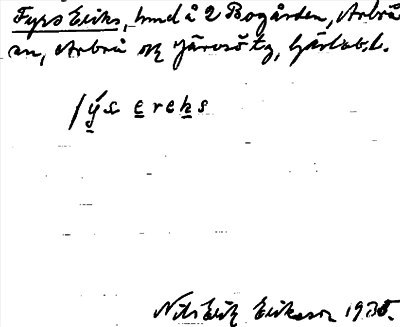 Fyrs Eriks, hmd å 2 Bogården, Arbrå
sn, Arbrå och Järvsö tg, Gävleb. l.
fy̱s e̱reḵs
Nils Erik Eriksson 1935.